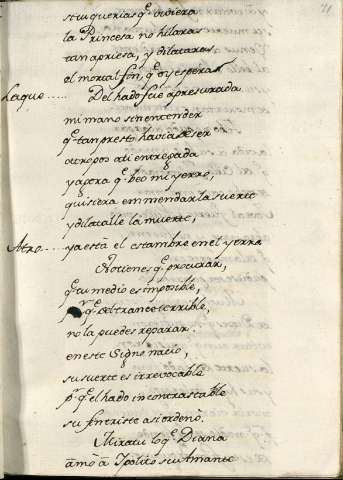 si tu querias q.e viviera
la Princesa no hilaras
tan apriesa, y dilataras
el mortal fin, q.e oy esperas
Laque..... Del hado fue apresurada
mi mano sin entender
q.e tan presto havia de ser
atropos a ti entregada
y agora q.e beo mi yerro,
quisiera enmendar la suerte
y dilatalle la muerte,
Atro..... ya està el estambre en el yerro
No tienes q.e procurar,
q.e tu medio es imposible,
q.e del trance terrible,
no la puedes reparar.
en este Signo naciò,
su suerte es irrevocable
p.r q.e el hado incontrastable
su fin triste asi ordenò.
Mira tu lo q.e Diana
amò à Ipolito su Amante